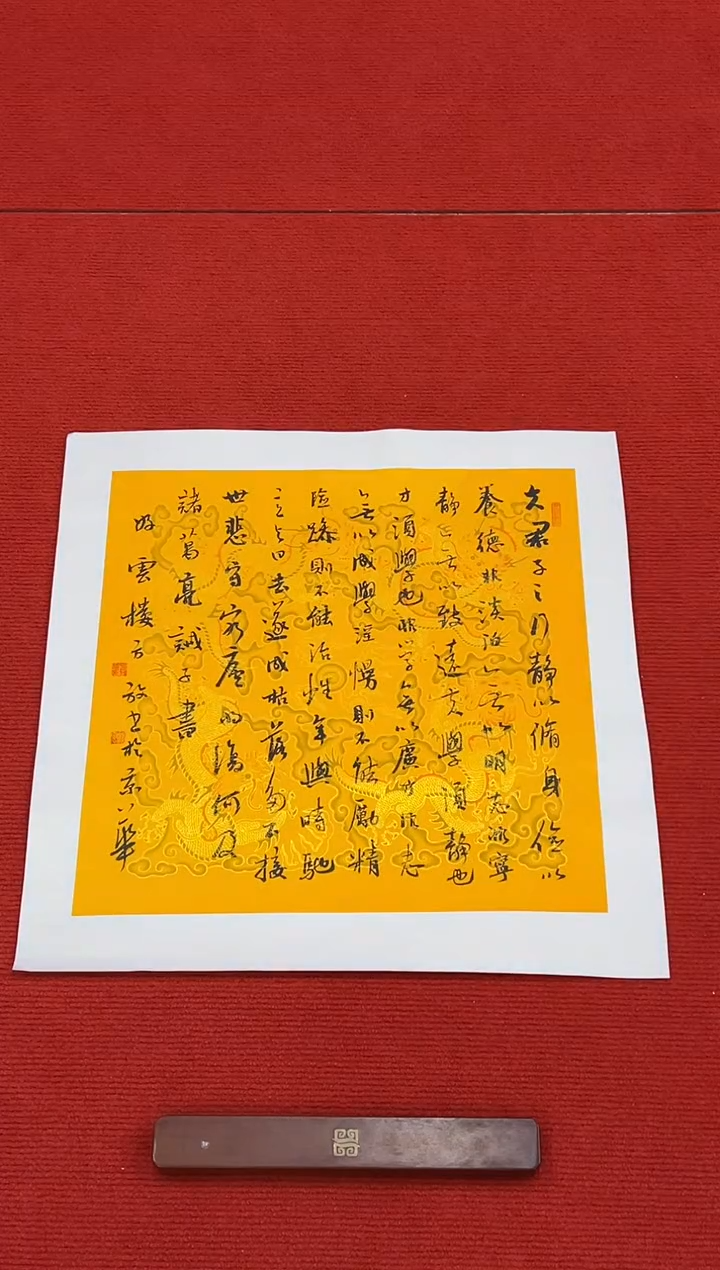 夫君子之行静以脩身儉以
養德非淡泊無以明志非寧
静無以致遠夫學須静也
才須學也非學無以廣才非志
無以成學淫慢則不能勵精
險躁則不能治性年與時馳
意与日去遂成枯落多不接
世悲守窮廬將復何及
諸葛亮誡子書
雲樓方放书於京華